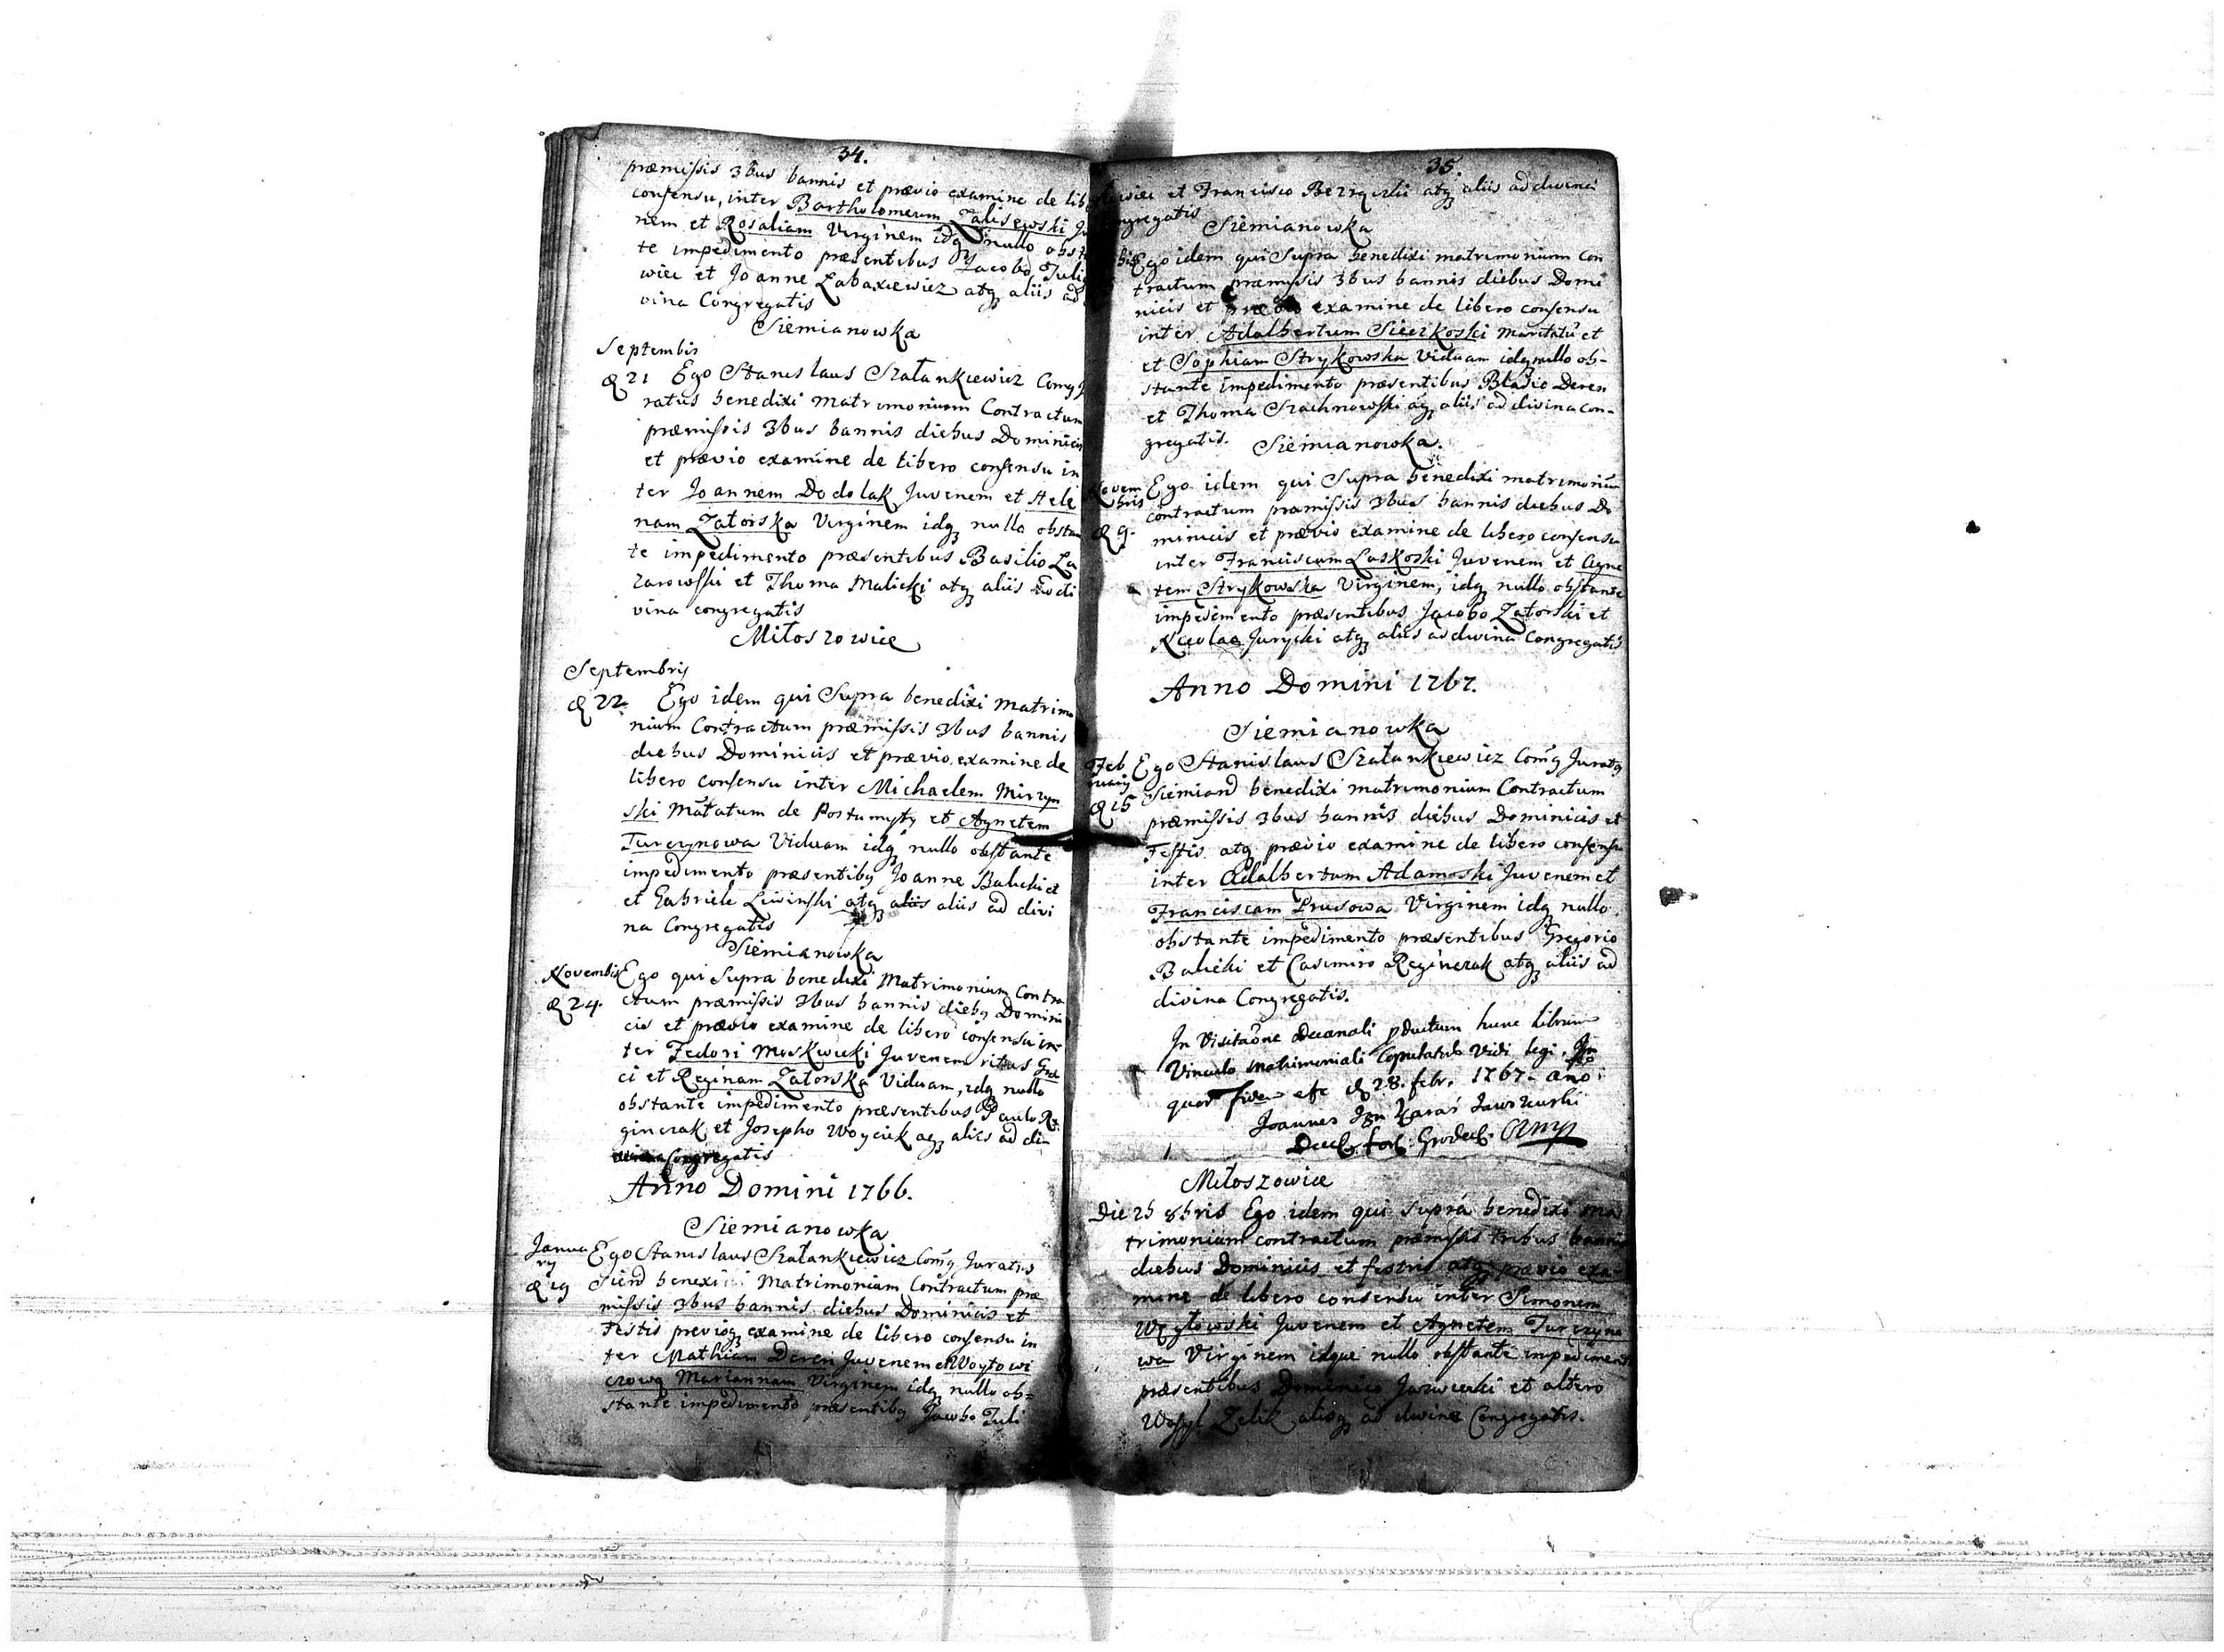 34.
præmissis 3bus bannis et prævio examine de lib
consensu, inter Bartholomeum Zalisewski Ju
nem et Rosaliam Virginem idq nullo obst
te impedimento præsentibus Jacobo Juli
wiec et Joanne Labaxiewicz atq aliis ad
vina Congregatis
Siemianowka
Septembris
d 21 Ego Stanislaus Szałankiewicz Comg J
ratus benedixi matrimonium Contractum
præmissis 3bus bannis diebus Dominicis
et prævio examine de libero consensu in
ter Joannem Dodolak Juvenem et Hele
nam Zatorska Virginem idq nullo obstan
te impedimento præsentibus Basilio La
zarowski et Thoma Malicki atq aliis ad di
vina congregatis
Miłoszowice
Septembris
d 22. Ego idem qui Supra benedixi matrimo
nium Contractum præmissis 3bus bannis
diebus Dominicis et prævio examine de
libero consensu inter Michaelem Mirzyn
ski Matatum de Postumyty et Agnetem
Turczynowa Viduam idq nullo obstante
impedimento præsentibq Joanne Balicki et
et Gabriele Liwinski atq aliis aliis ad divi
na Congregatis
Siemianowka
Novembris Ego qui Supra benedixi Matrimonium Contra
d 24. ctum præmissis 3bus bannis diebq Domini
cis et prævio examine de libero consensu in
ter Fedori Moskwicki Juvenem ritus Græ
ci et Reginam Zatorska Viduam, idq nullo
obstante impedimento præsentibus Paulo Re
ginczak et Josepho Woyciik aq aliis ad di
vina Congregatis
Anno Domini 1766.
Siemianowka
Janua Ego Stanislaus Szałankiewicz Comg Juratus
ry Siem benexi Matrimonium Contractum præ
d 19 missis 3bus bannis diebus Dominicis et
Festis previoq examine de libero consensu in
ter Mathiam Deren Juvenem et Woytowi
czowq Mariannam Virginem idq nullo ob=
stante impedimento præsentibq Jacobo Juli
35.
wiec et Francisco atq aliis ad divina
ongregatis
Siemianowka
Ego idem qui Supra benedixi matrimonium Con
tractum præmissis 3bus bannis diebus Domi
nicis et examine de libero consensu
inter Adalbertum Sierzkoski Maritatu et
et Sophiam Strykowska Viduam idq nullo ob-
stante impedimento præsentibus Bładio Deren
et Thoma Szachnowski aq aliis ad divina con-
gregatis. Siemianowka.
Novem Ego idem qui Supra benedixi matrimoniu
bris contractum præmissis 3bus bannis diebus Do
d 9. minicis et prævio examine de libero consensu
inter Franciscum Laskoski Juvenem et Agne
tem Strykowska Virginem, idq nullo obstante
impedimento præsentibus Jacobo Zatorski et
Nicolao Jurycki atq aliis ad divina Congregatis
Anno Domini 1767.
Siemianowka
Feb Ego Stanislaus Szałankiewicz Comg Juratq
ruarij Siemian benedixi matrimonium Contractum
d 15 præmissis 3bus bannis diebus Dominicis et
Festis atq prævio examine de libero consensu
inter Adalbertum Adamoski Juvenem et
Franciscam Prusowa Virginem idq nullo
obstante impedimento præsentibus Gregorio
Balicki et Casimiro Reginczak atq aliis ad
divina Congregatis.
In Visitaone Decanali pductum hunc librum
Vinculo matrimoniali Copulatorū vidi legi. In
quor fidem d 28. febr. 1767. año
Joannes
Miłoszowice
Die 25 8bris Ego idem qui supra benedixi ma
trimonium contractum præmissis tribus bannis
diebus Dominicis et festris atq prævio exa-
mine de libero consensu inter Simonem
Woytowski Juvenem et Agnetem Turczyno
wa Virginem idque nullo obstante impediment
præsentibus Dominico Jaxwiecki et altero
Wasyl Zelik aliisq ad divina Congregatis.